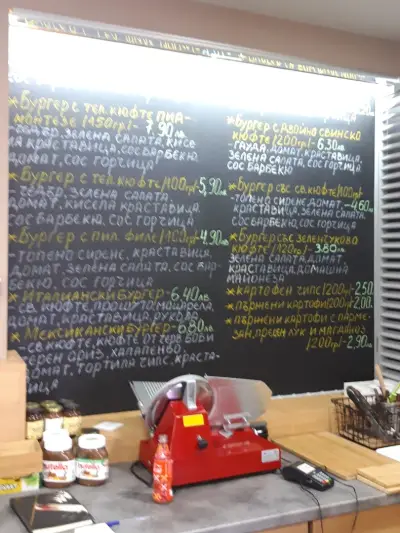 ★Бургер с тел. кюфте пиа-
монтезе /150гр/- 7,90лв.
-чедър, зелена салата, кисе-
ла краставица, сос барбекю,
домат, сос горчица
★Бургер с тел. кюфте/100гр/-5,90лв.
-чедър, зелена салата,
домат, кисела краставица,
сос барбекю, сос горчица
★Бургер с пил. филе/100гр/-4,90лв.
-топено сирене, краставица,
домат, зелена салата, сос бар-
бекю, сос горчица
★Италиански бургер- 6,40лв.
-св. кюфте, прошуто, моцарела,
домат, краставица, рукола
★Мексикански бургер- 6,80лв.
-св. кюфте, кюфте от черв. боби
ориз, халапеньо,
домат, тортила чипс, краста-
вица
★Бургер с двойно свинско
кюфте /200гр/- 6,30лв.
-гауда, домат, краставица,
зелена салата, сос горчица
сос барбекю
★Бургер със св. кюфте/100гр/
-топено сирене, домат, -4,60лв.
краставица, зелена салата,
сос барбекю, сос горчица
★Бургер със зеленчуково
кюфте /120гр/- 3,80лв.
зелена салата, домат,
краставица, домашна
майонеза
★картофен чипс/200гр/-2,50.
★пържени картофи/200гр/-2,00.
★пържени картофи с парме-
зан, пресен лук и магданоз
/200гр/-2,90лв.
nutella
nutella